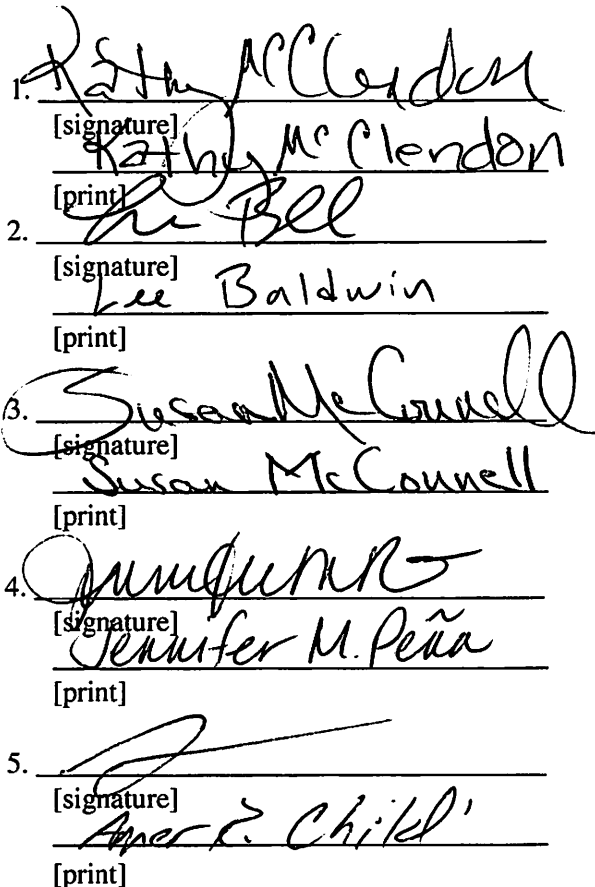 1. Kathy McClendon
[signature]
Kathy McClendon
[print]
2.
[signature]
Lee Baldwin
[print]
3. Susan McConnell
[signature]
Susan McConnell
[print]
4.
[signature]
Jennifer M. Peña
[print]
5.
[signature]
R.
[print]